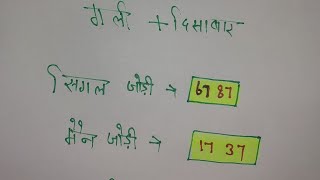 गली + दिसावर
सिंगल जोड़ी → 67 87
मेन जोड़ी → 17 37